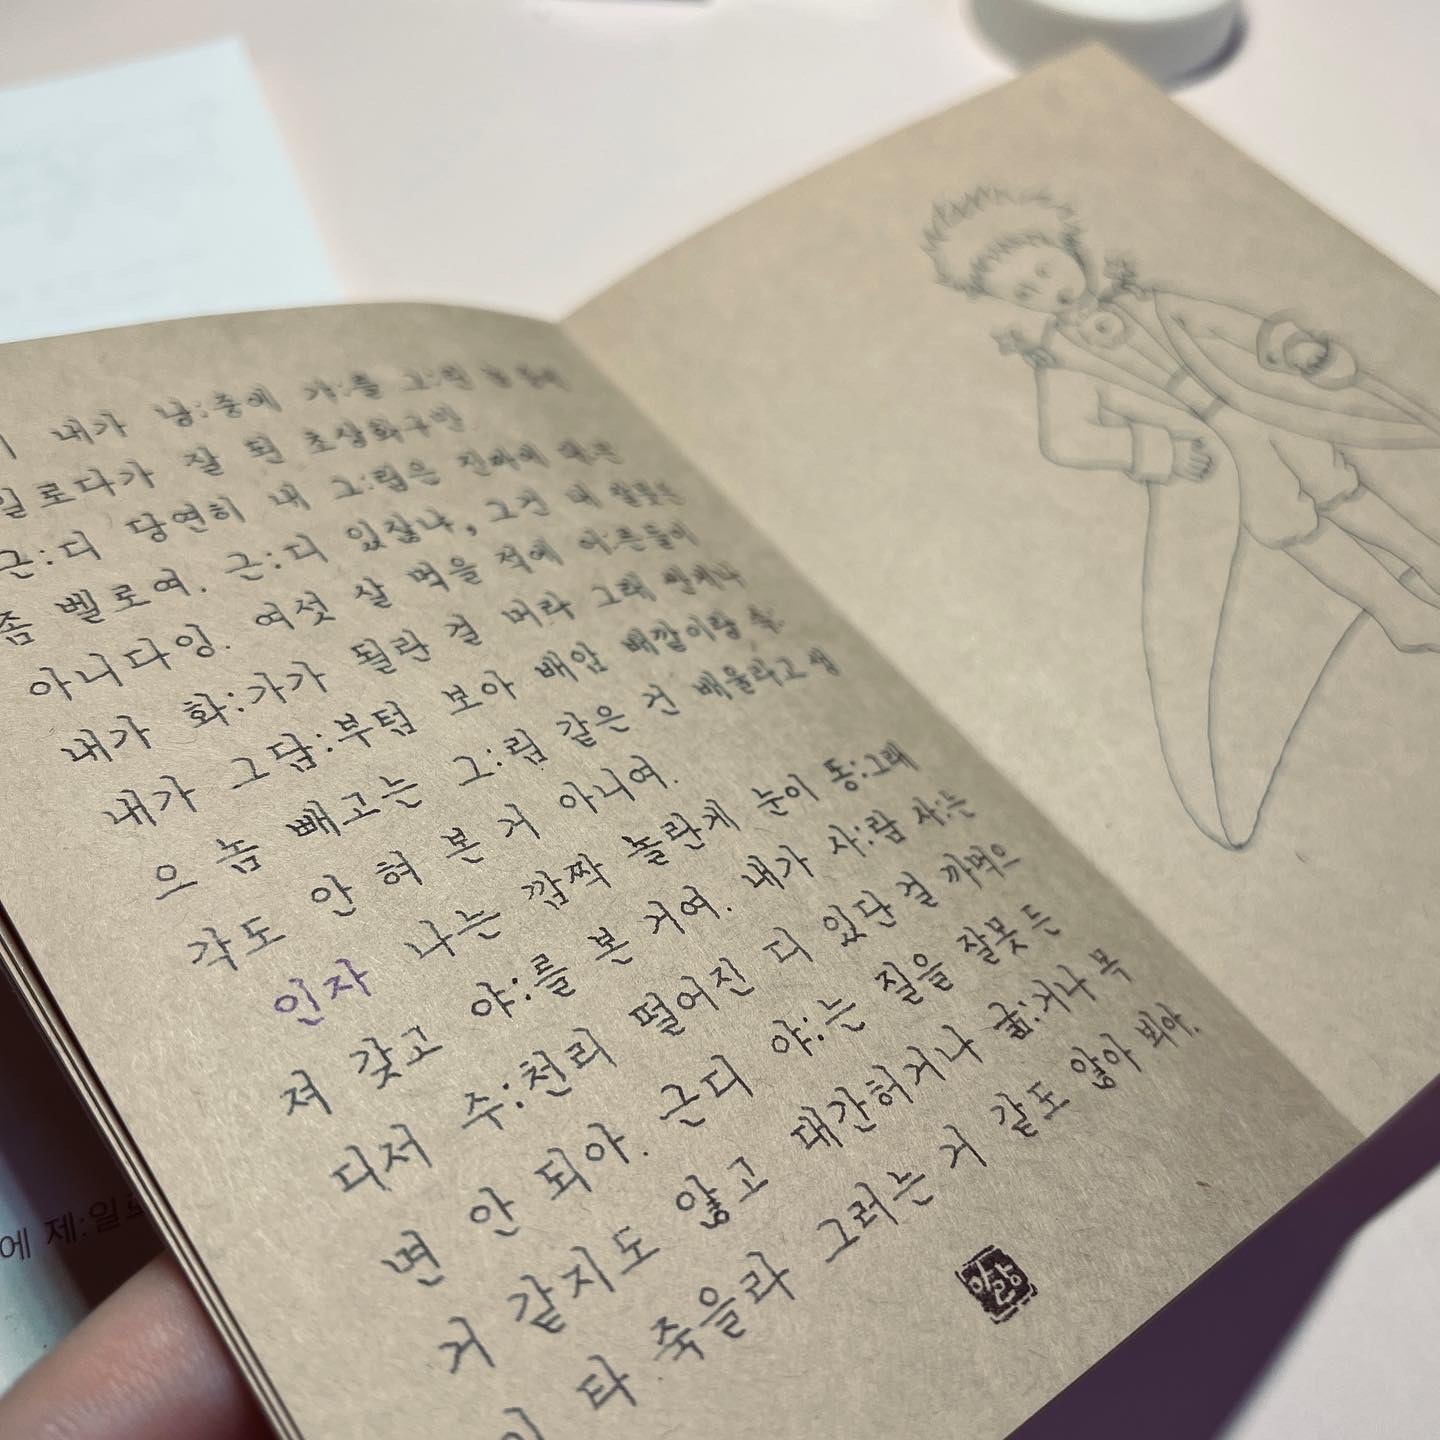 내가 낭:중에 갸:를 그:린
일로다가 잘 된 초상화구만.
근:디 당연히 내 그:림은 진짜에 대:믄
좀 벨로여. 근:디 있잖냐, 그건 내 잘못은
아니다잉. 여섯 살 먹을 적에 어:른들이
내가 화:가가 될란 걸 머라 그래 쌌게나
내가 그담:부텀 보아 배암 배깥이랑 속:
으 놈 빼고는 그:림 같은 건 배울라고 생
각도 안 혀 본 거 아니여.
인자 나는 깜짝 놀란게 눈이 동:그래
져 갖고 야:를 본 거여. 내가 사:람 사:는
디서 수:천리 떨어진 디 있단 걸 까먹으
면 안 되아. 근디 야:는 질을 잘못 든
거 같지도 않고 대간허거나 굶:거나 목
이 타 죽을라 그러는 거 같도 않아 뵈아.
에 제:일로